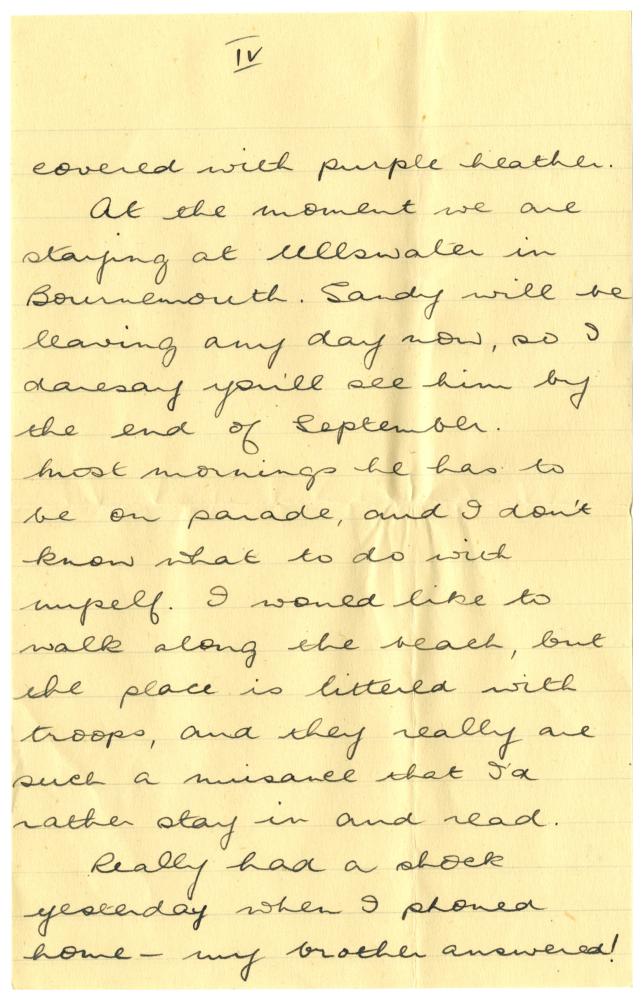 IV
covered with purple heather.
At the moment we are
staying at Ullswater in
Bournemouth. Sandy will be
leaving any day now, so I
daresay you'll see him by
the end of September.
Most mornings he has to
be on parade, and I don't
know what to do with
myself. I would like to
walk along the beach, but
the place is littered with
troops, and they really are
such a nuisance that I'd
rather stay in and read.
Really had a shock
yesterday when I phoned
home – my brother answered!